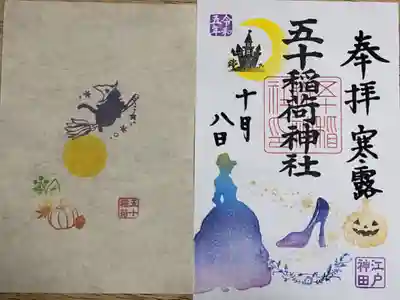 奉拝 寒露
五十稲荷神社
十月
八日
令和
五年
江戸
神田
五十
稲荷